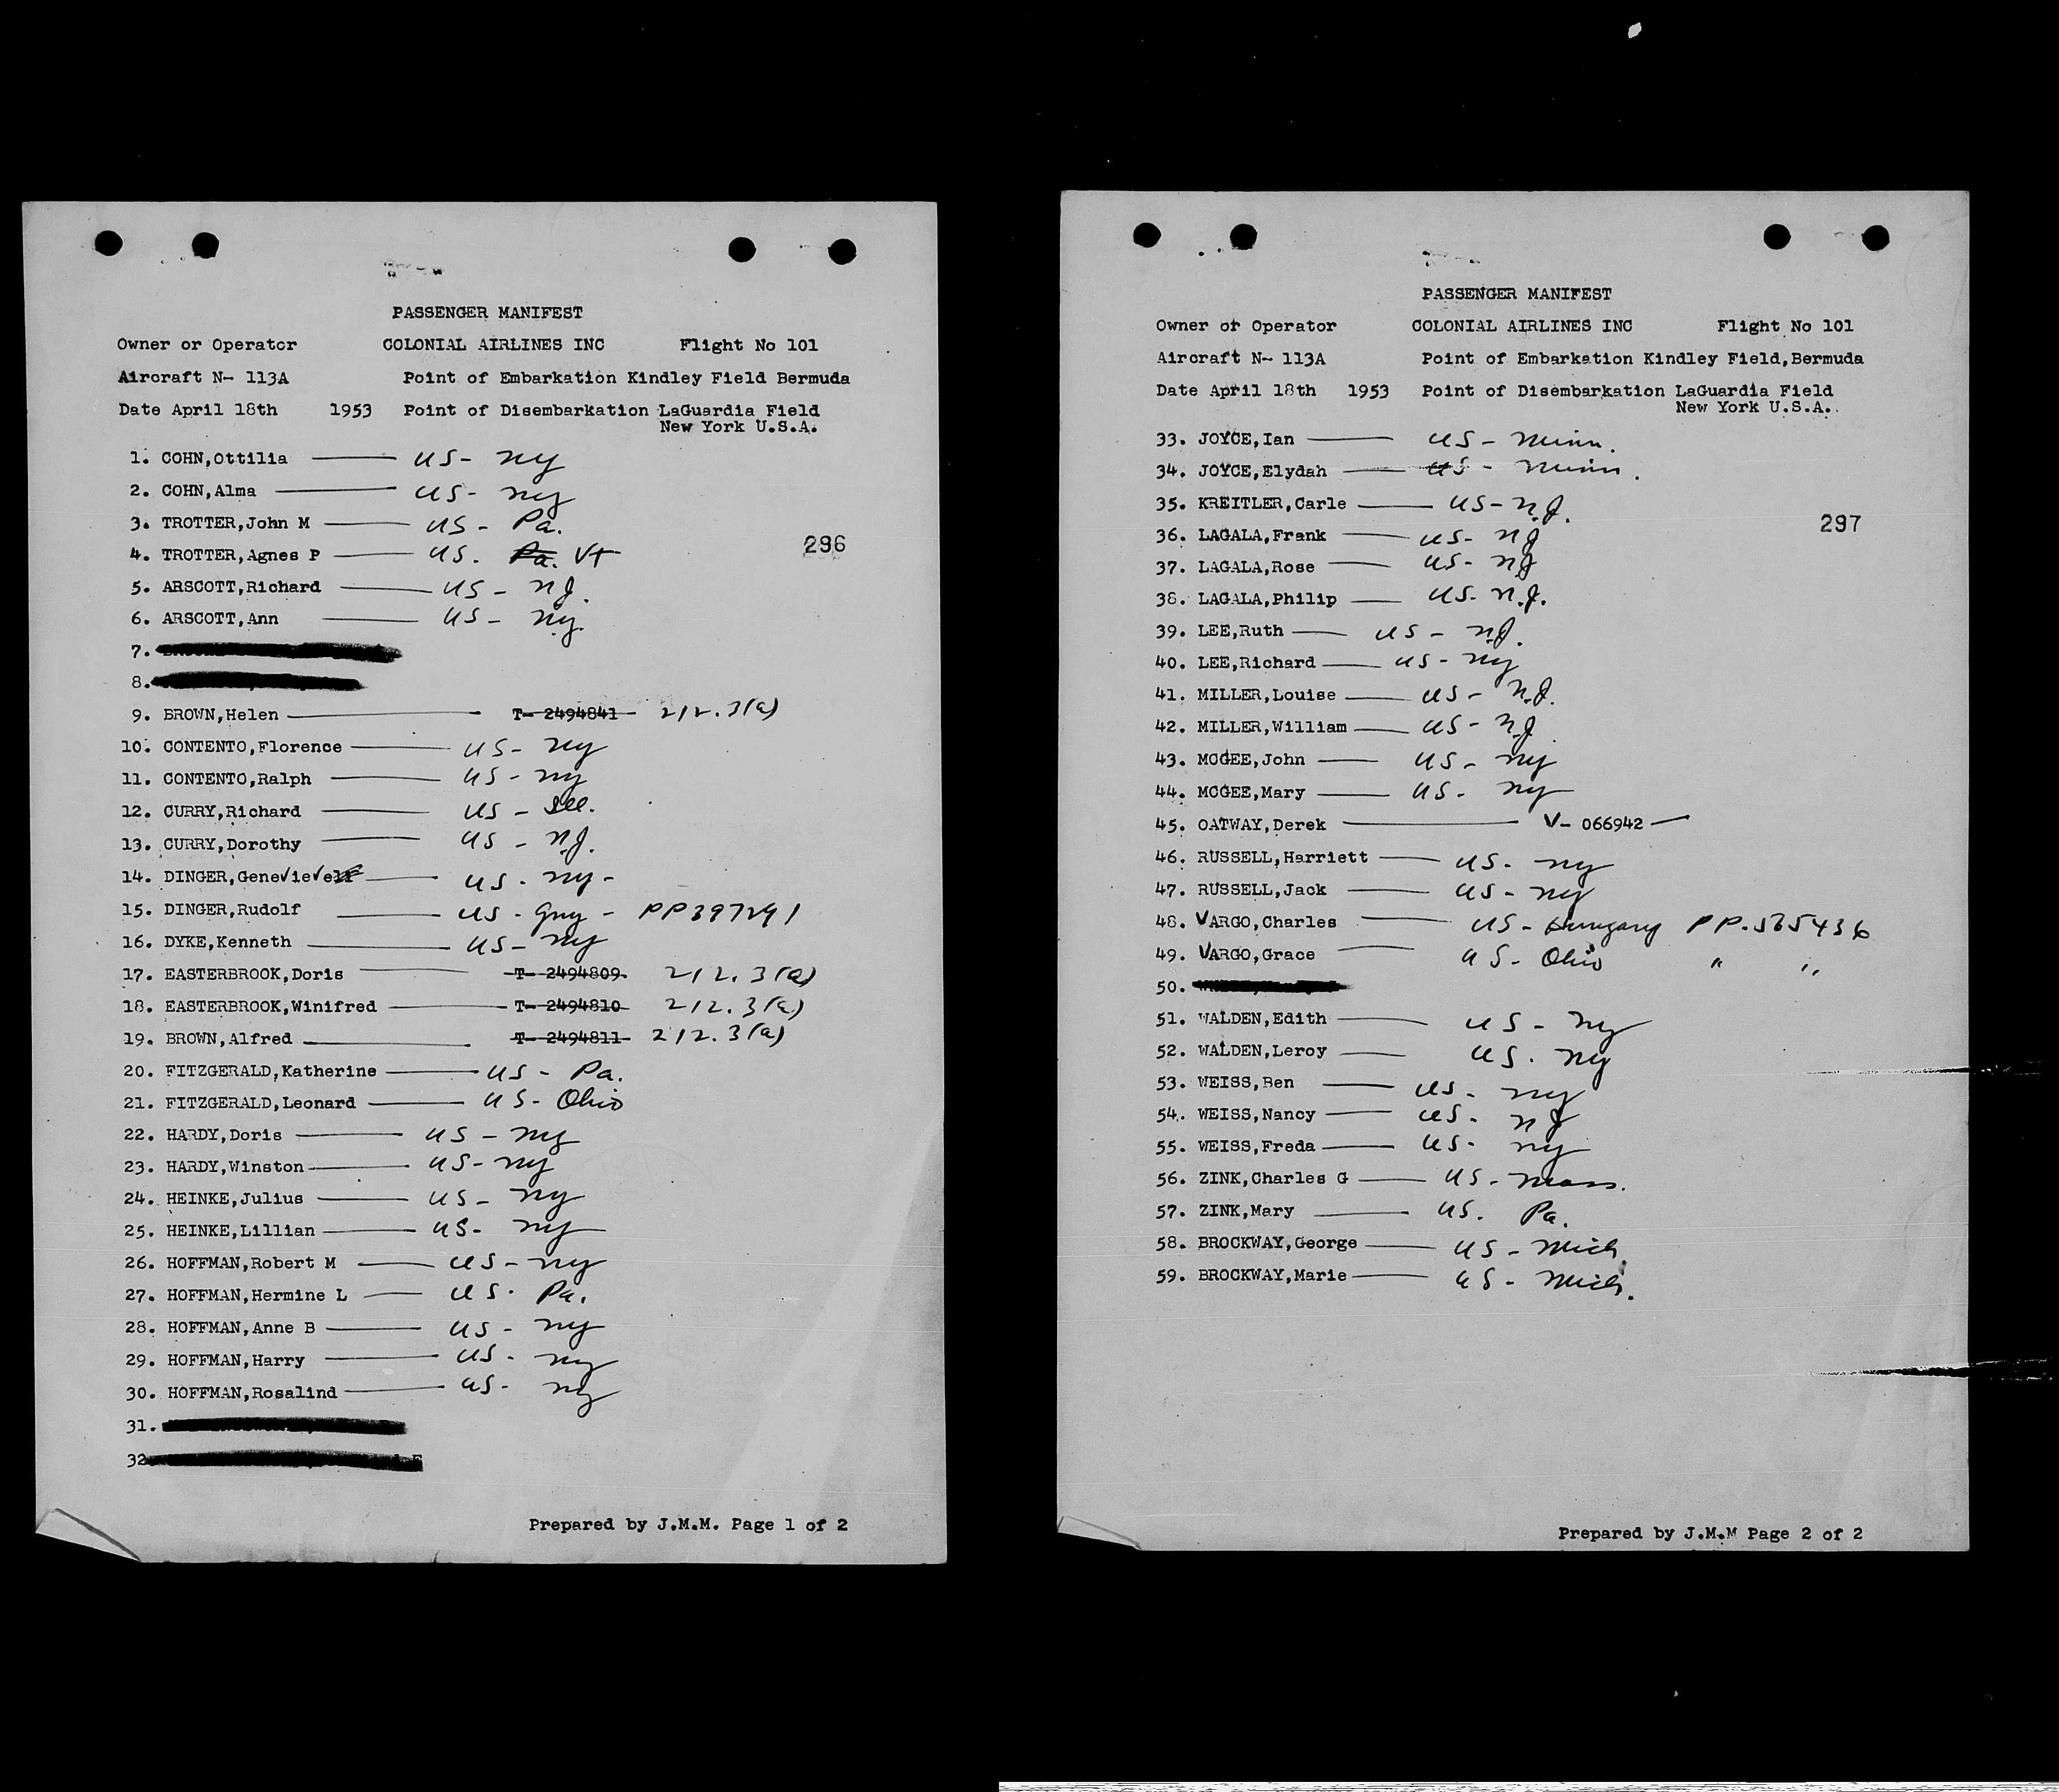 PASSENGER MANIFEST
Owner or Operator COLONIAL AIRLINES INC Flight No 101
Aircraft N- 113A Point of Embarkation Kindley Field Bermuda
Date April 18th 1953 Point of Disembarkation LaGuardia Field
New York U.S.A.
1. COHN,Ottilia US- NY
2. COHN,Alma US- NY
3. TROTTER,John M US - Pa.
4. TROTTER,Agnes P US. Pa. Vt
296
5. ARSCOTT,Richard US - NJ.
6. ARSCOTT,Ann US - NY.
7.
8.
9. BROWN,Helen T- 2494841 212.3(a)
10. CONTENTO,Florence US- NY
11. CONTENTO,Ralph US - NY
12. CURRY,Richard US - Ill.
13. CURRY,Dorothy US - N.J.
14. DINGER,Genevieve US - NY-
15. DINGER,Rudolf US - Gny - PP397291
16. DYKE,Kenneth US- NY
17. EASTERBROOK,Doris T- 2494809 212.3(a)
18. EASTERBROOK,Winifred T- 2494810 212.3(a)
19. BROWN,Alfred T- 2494811 212.3(a)
20. FITZGERALD,Katherine US - Pa.
21. FITZGERALD,Leonard US- Ohio
22. HARDY,Doris US - NY
23. HARDY,Winston US- NY
24. HEINKE,Julius US - NY
25. HEINKE,Lillian US- NY
26. HOFFMAN,Robert M US - NY
27. HOFFMAN,Hermine L US. Pa.
28. HOFFMAN,Anne B US - NY
29. HOFFMAN,Harry US - NY
30. HOFFMAN,Rosalind US- NY
31.
32
Prepared by J.M.M. Page 1 of 2
PASSENGER MANIFEST
Owner or Operator COLONIAL AIRLINES INC Flight No 101
Aircraft N- 113A Point of Embarkation Kindley Field,Bermuda
Date April 18th 1953 Point of Disembarkation LaGuardia Field
New York U.S.A.
33. JOYCE,Ian US - Minn.
34. JOYCE,Elydah US - Minn.
35. KREITLER,Carle US- N.J.
297
36. LAGALA,Frank US- NJ
37. LAGALA,Rose US- NJ
38. LAGALA,Philip US- N.J.
39. LEE,Ruth US - NJ.
40. LEE,Richard US - NY
41. MILLER,Louise US - N.J.
42. MILLER,William US - N.J
43. MCGEE,John US - NY
44. MCGEE,Mary US - NY
45. OATWAY,Derek V- 066942
46. RUSSELL,Harriett US- NY
47. RUSSELL,Jack US - NY
48. VARGO,Charles US - Hungary PP.565436
49. VARGO,Grace US- Ohio " "
50.
51. WALDEN,Edith US - NY
52. WALDEN,Leroy US. NY
53. WEISS,Ben US - NY
54. WEISS,Nancy US- NJ
55. WEISS,Freda US- NY
56. ZINK,Charles G US - Mass.
57. ZINK,Mary US. Pa.
58. BROCKWAY,George US - Mich.
59. BROCKWAY,Marie US - Mich.
Prepared by J.M.M Page 2 of 2